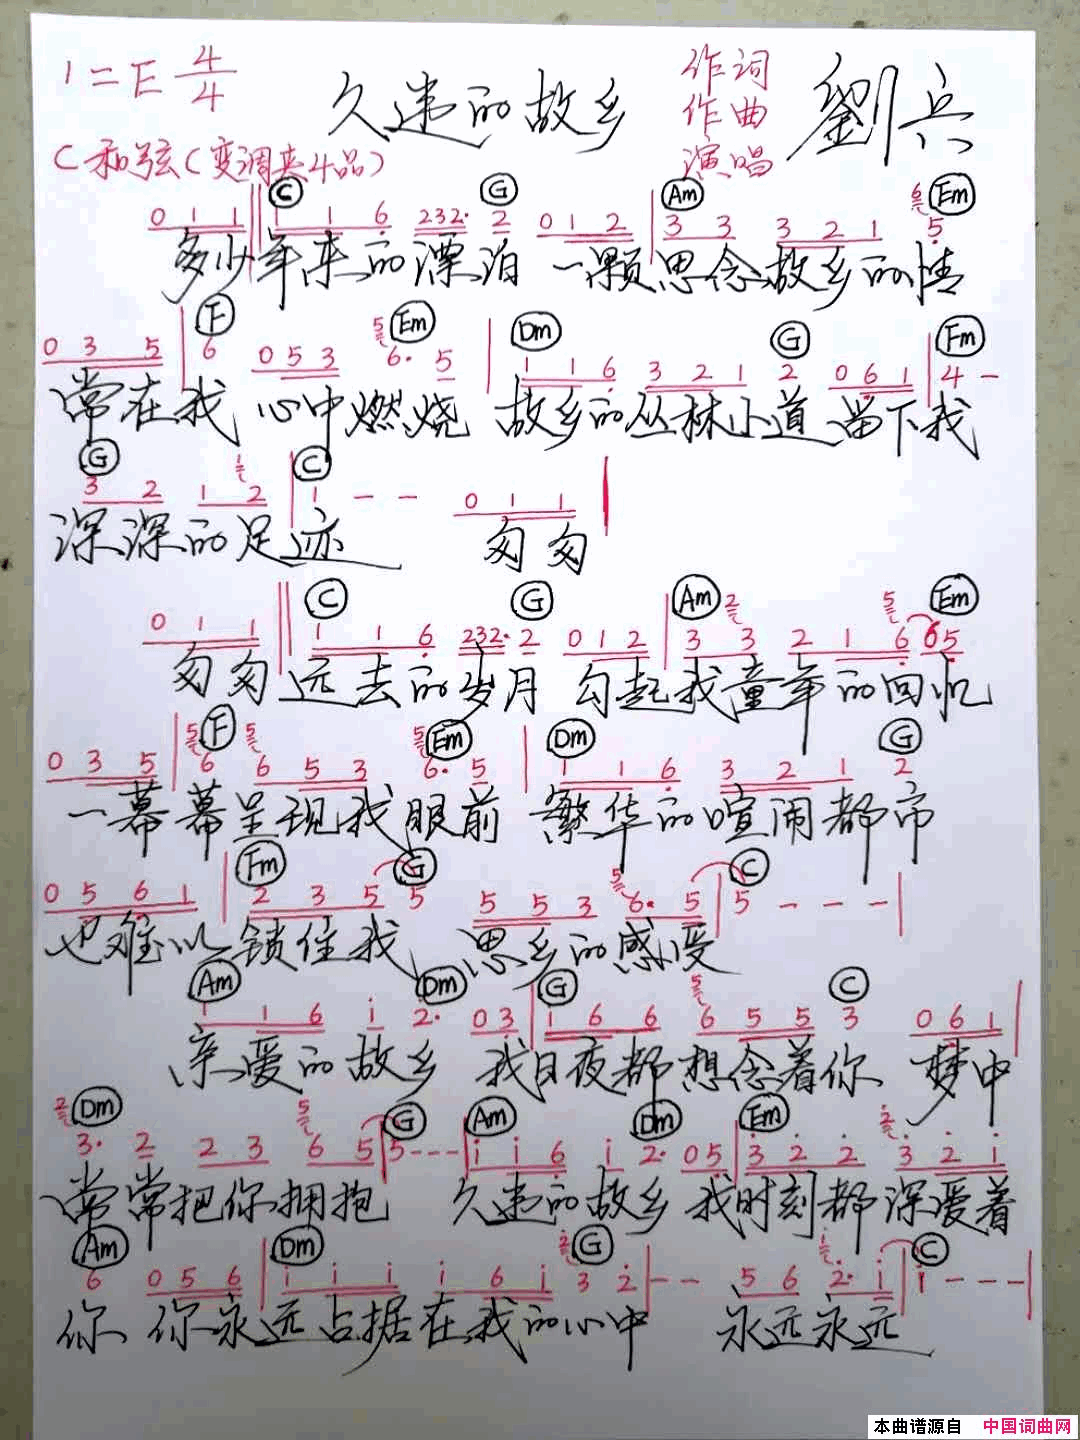 1=E 4/4
久违的故乡
作词
作曲
演唱
劉兵
C和弦(变调夹4品)
C G Am Em
0 1 1 1 1 6 232· 2 0 1 2 3 3 3 2 1 6 5
多少年来的漂泊 一颗思念故乡的情
F Em Dm G Fm
0 3 5 6 0 5 3 5 6· 5 1 1 6 3 2 1 2 0 6 1 4 -
常在我 心中燃烧 故乡的丛林小道 留下我
G C
3 2 1 1 2 1 - - 0 1 1
深深的足迹 匆匆
C G Am Em
0 1 1 1 1 6 232· 2 0 1 2 3 2 3 2 1 5 6 6 5
匆匆远去的岁月 勾起我童年的回忆
F Em Dm G
0 3 5 5 6 5 6 5 3 5 6· 5 1 1 6 3 2 1 2
一幕幕呈现我眼前 繁华的喧闹都市
Fm G C
0 5 6 1 2 3 5 5 5 5 3 5 6· 5 5 - - -
也难以锁住我 思乡的感受
Am Dm G C
1 1 6 i 2· 0 3 1 6 6 5 6 5 5 3 0 6 1
亲爱的故乡 我日夜都想念着你 梦中
Dm G Am Dm Em
2 3· 2 2 3 5 6 5 5 - - - i i 6 i 2· 0 5 3 2 2 2 3 2 i
常常把你拥抱 久违的故乡 我时刻都深爱着
Am Dm G C
6 0 5 6 i i i i 6 i 2 3 2 - - 5 6 i 2· i i - - -
你 你永远占据在我的心中 永远永远
本曲谱源自 中国词曲网